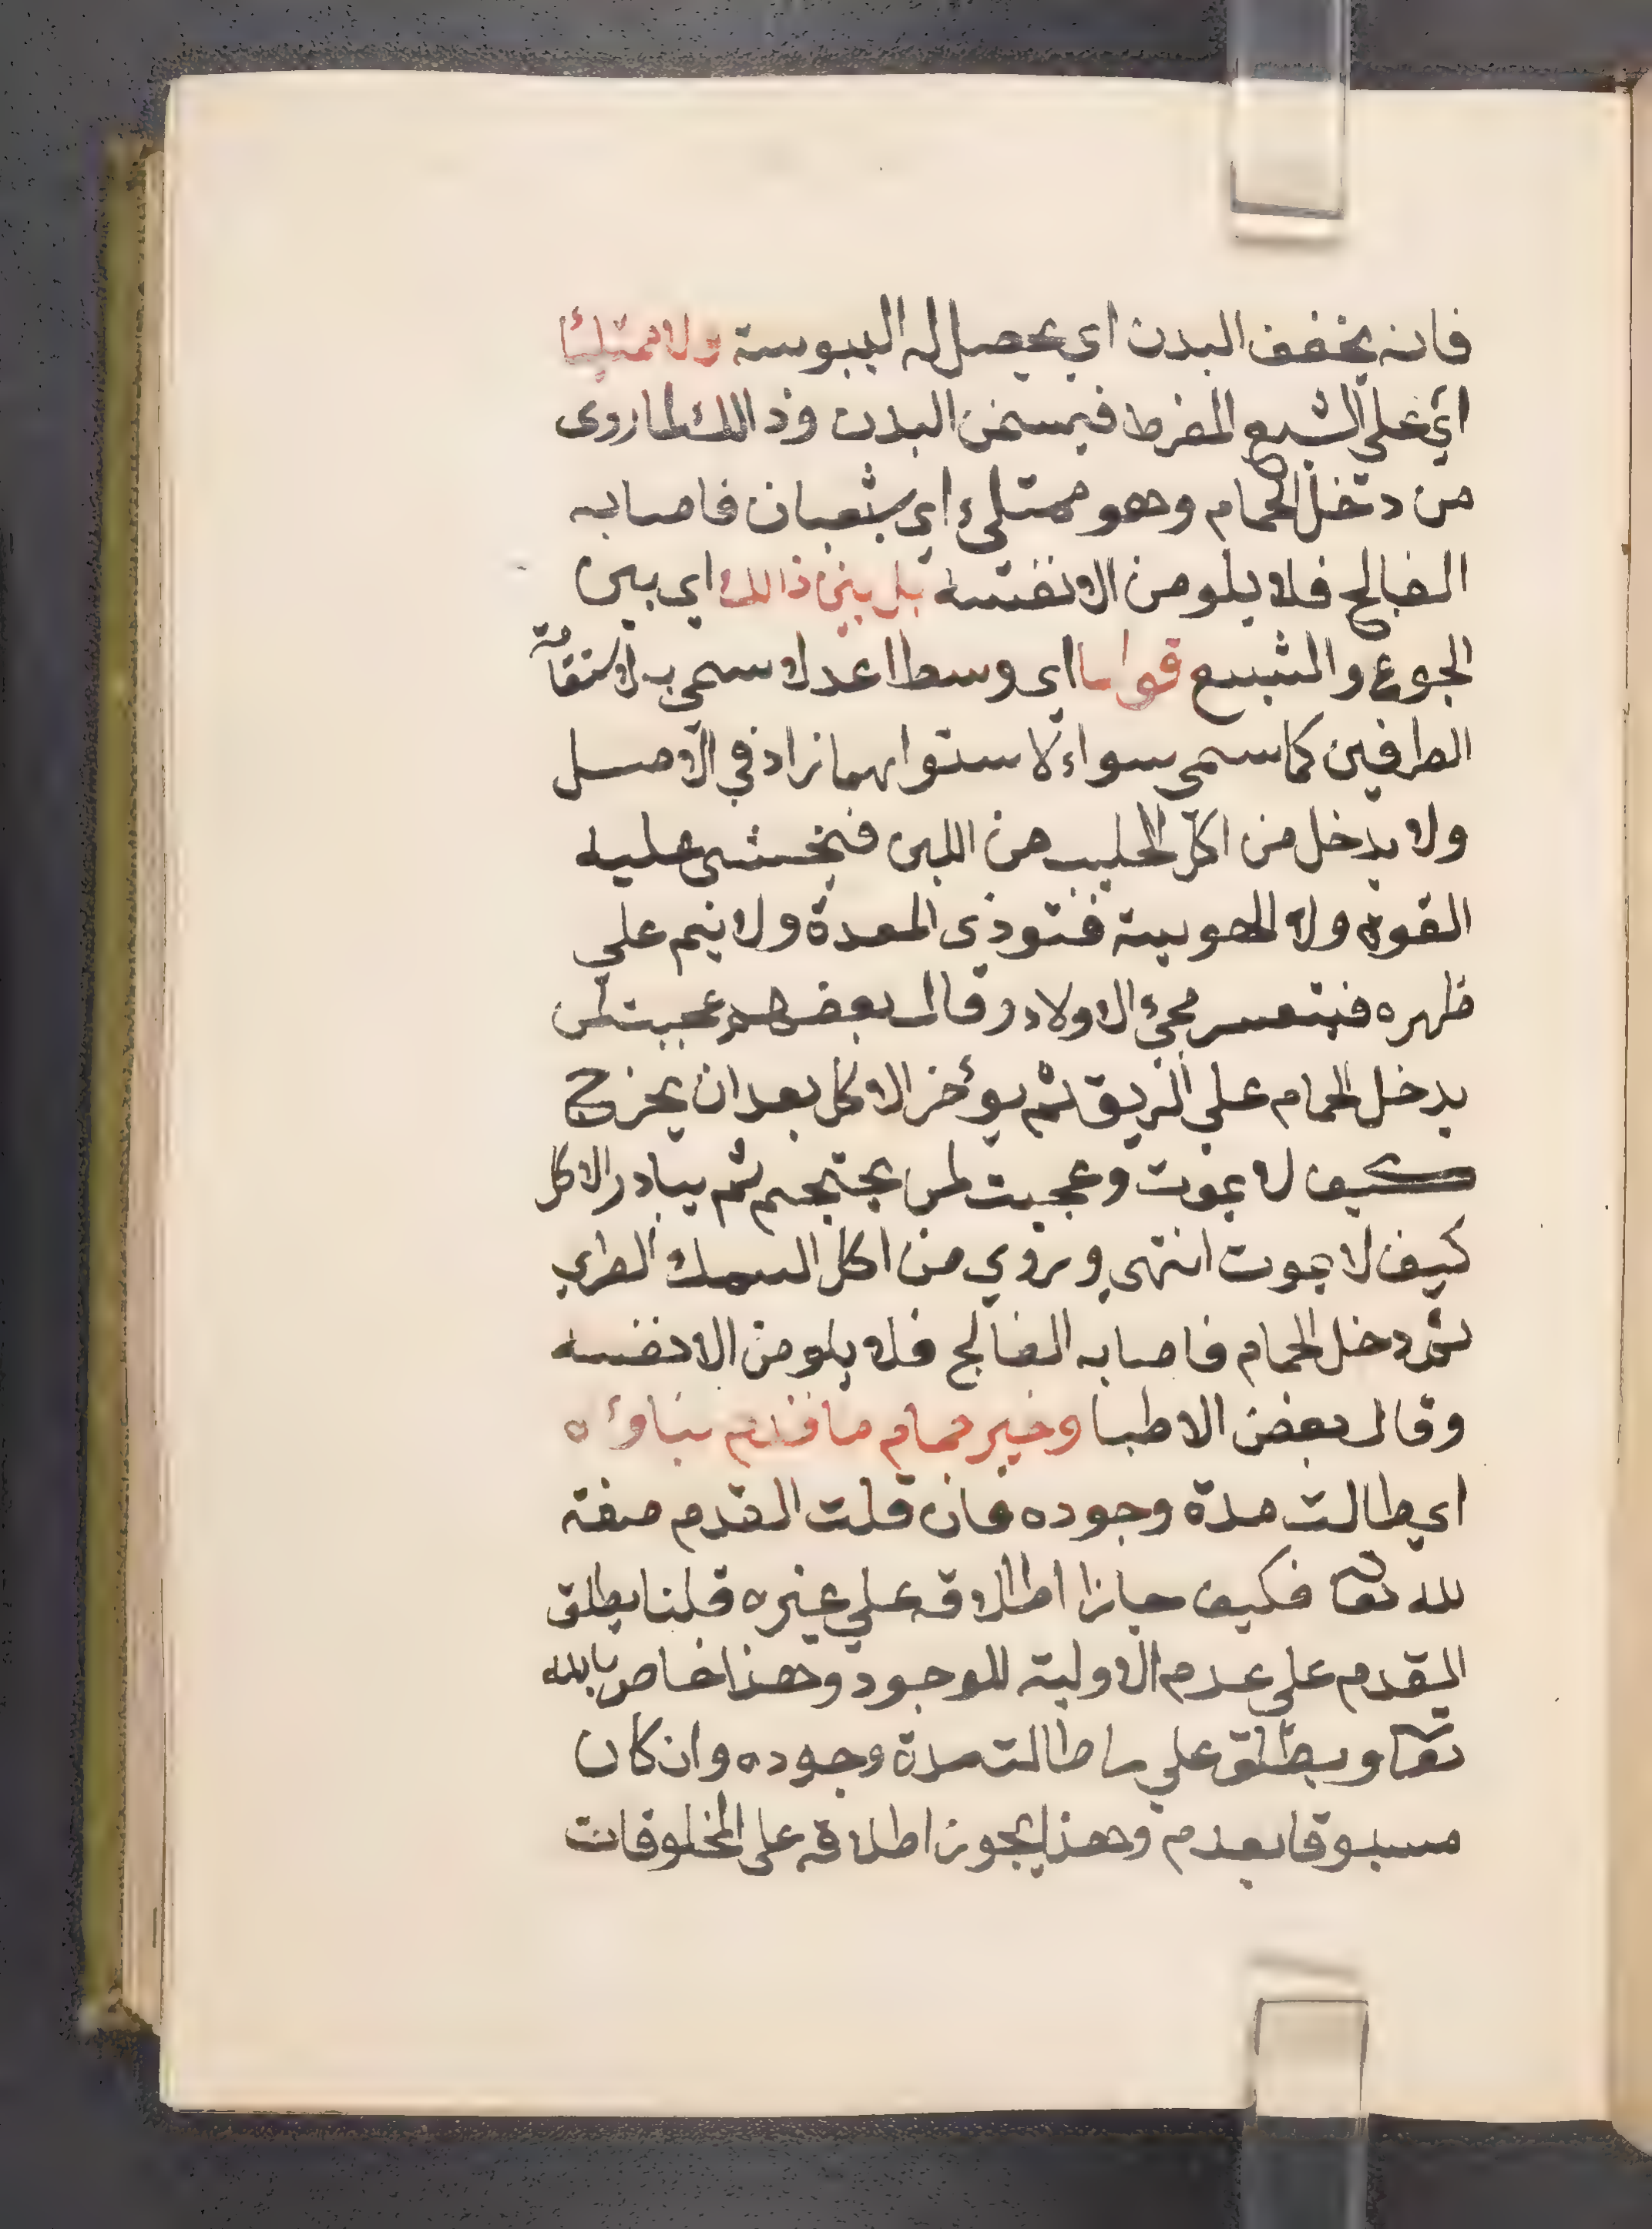 فانه يخفف البدن اي يحصل له اليبوسة ولا ممتلئا
اي على الشبع المفرط فيسخن البدن وذالك لما روى
من دخل الحمام وهو ممتلئ اي شعبان فاصابه
الفالج فلا يلومن الا نفسه بل بين ذالك اي بين
الجوع والشبع قواما اي وسطا اعدلا سمي به لاستقامة
الطرفين كما سمي سواء لاستوايهما زاد في الاصل
ولا يدخل من اكل الحليب من اللبن فيخشى عليه
القوة ولا فتوذي المعدة ولا ينم علي
ظهره فيتعسر مجئ الاولاد وقال بعضهم عجبت لمن
يدخل الحمام على الريق ثم يؤخر الاكل بعد ان يخرج
كيف لا يموت وعجبت لمن يحتجم ثم يبادر الاكل
كيف لا يموت انتهى وروي من اكل السمك الطري
ثم دخل الحمام فاصابه الفالج فلا يلومن الا نفسه
وقال بعض الاطبا وخير حمام ما قدم بناؤه
اي طالت مدة وجوده فان قلت القدم صفة
لله تعا فكيف جازا اطلاقه علي غيره قلنا يطلق
القدم على عدم الاولية للوجود وهذا خاص بالله
تعا ويطلق علي ما طالت مدة وجوده وان كان
مسبوقا بعدم وهذا يجوز اطلاقه على المخلوقات